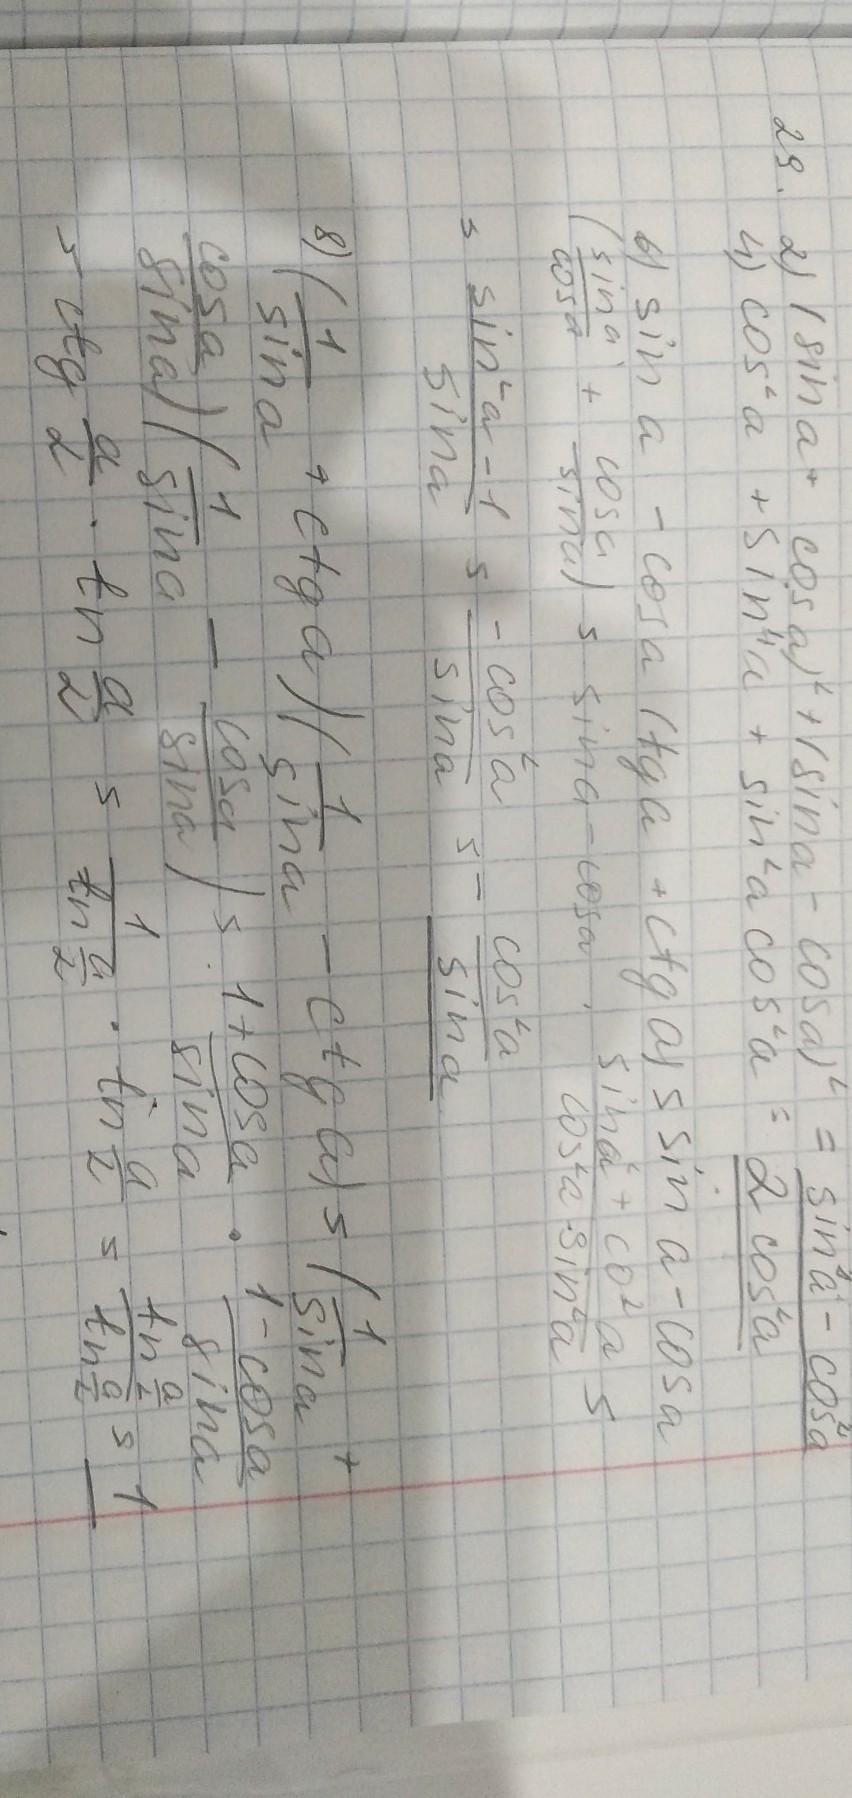 29. 2) (sin a + cos a)² + (sin a - cos a)² = sin²a - cos²a
4) cos²a + sin⁴a + sin²a cos²a = 2 cos²a
6) sin a - cos a (tg a + ctg a) = sin a - cos a
(sin a / cos a + cos a / sin a) = sin a - cos a · (sin a² + co² a) / (cos²a · sin²a) =
= (sin²a - 1) / sin a = - cos²a / sin a = - cos²a / sin a
8) (1 / sin a + ctg a) (1 / sin a - ctg a) = (1 / sin a +
cos a / sin a) (1 / sin a - cos a / sin a) = (1 + cos a) / sin a · (1 - cos a) / sin a
= ctg a/2 · tn a/2 = 1 / tn a/2 · tn a/2 = tn a/2 / tn a/2 = 1